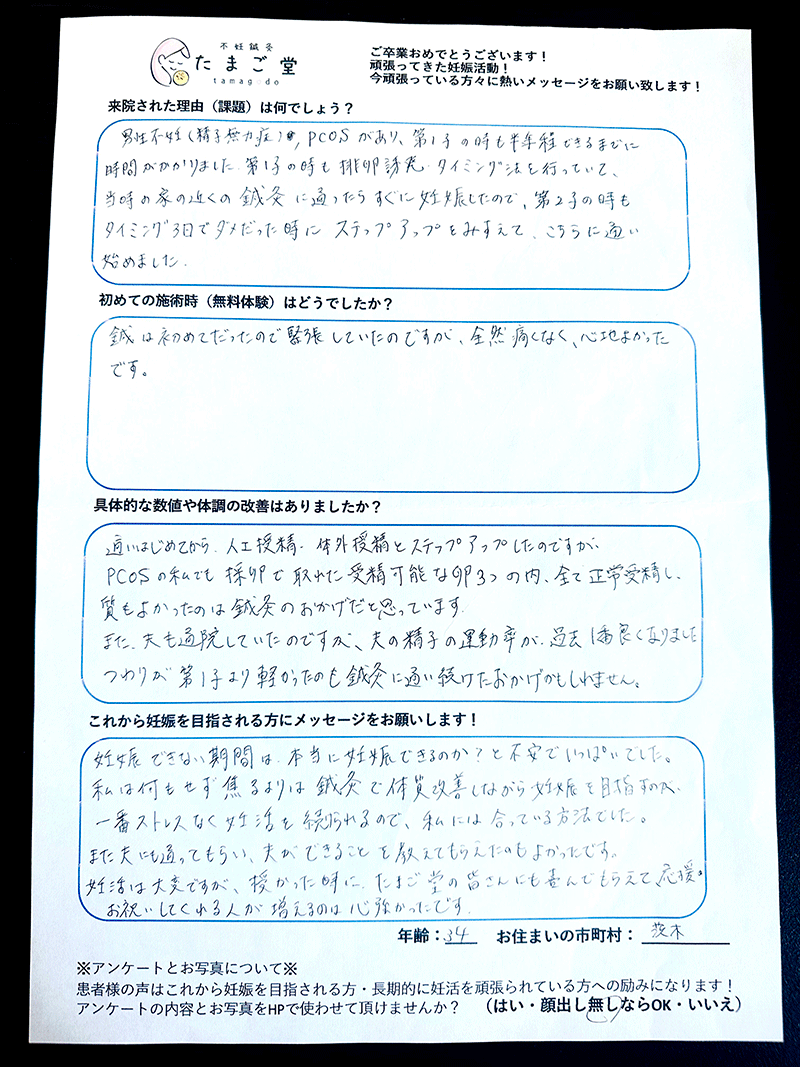 不妊鍼灸
たまご堂
tamago-do
ご卒業おめでとうございます！
頑張ってきた妊娠活動！
今頑張っている方々に熱いメッセージをお願い致します！
来院された理由（課題）は何でしょう？
男性不妊（精子無力症）、PCOSがあり、第1子の時も半年程できるまでに
時間がかかりました。第1子の時も排卵誘発、タイミング法を行っていて、
当時の家の近くの鍼灸に通ったらすぐに妊娠したので、第2子の時も
タイミング3回でダメだった時にステップアップをみすえて、こちらに通い
始めました。
初めての施術時（無料体験）はどうでしたか？
鍼は初めてだったので緊張していたのですが、全然痛くなく、心地よかった
です。
具体的な数値や体調の改善はありましたか？
通いはじめてから、人工授精、体外授精とステップアップしたのですが、
PCOSの私でも採卵で取れた受精可能な卵3つの内、全て正常受精し、
質もよかったのは鍼灸のおかげだと思っています。
また、夫も通院していたのですが、夫の精子の運動率が過去1番良くなりました
つわりが第1子より軽かったのも鍼灸に通い続けたおかげかもしれません。
これから妊娠を目指される方にメッセージをお願いします！
妊娠できない期間は、本当に妊娠できるのか？と不安でいっぱいでした。
私は何もせず焦るよりは鍼灸で体質改善しながら妊娠を目指すのが、
一番ストレスなく妊活を続けられるので、私には合っている方法でした。
また夫にも通ってもらい、夫ができることを教えてもらえたのもよかったです。
妊活は大変ですが、授かった時に、たまご堂の皆さんにも喜んでもらえて、応援・
お祝いしてくれる人が増えるのは心強かったです。
年齢：34 お住まいの市町村：茨木
※アンケートとお写真について※
患者様の声はこれから妊娠を目指される方・長期的に妊活を頑張られている方への励みになります！
アンケートの内容とお写真をHPで使わせて頂けませんか？ （はい・顔出し無しならOK・いいえ）